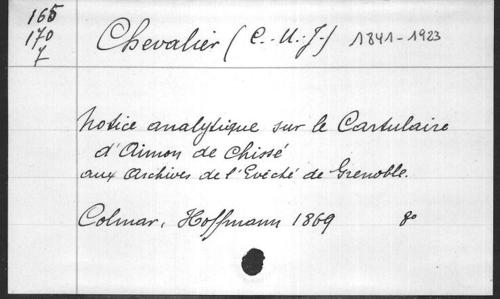 165
170
7
Chevalier (C.-U.-J.) 1841-1923
Notice analytique sur le Cartulaire
d'Aimon de Chissé
aux Archives de l'Evêché de Grenoble.
Colmar, Hoffmann 1869 8°